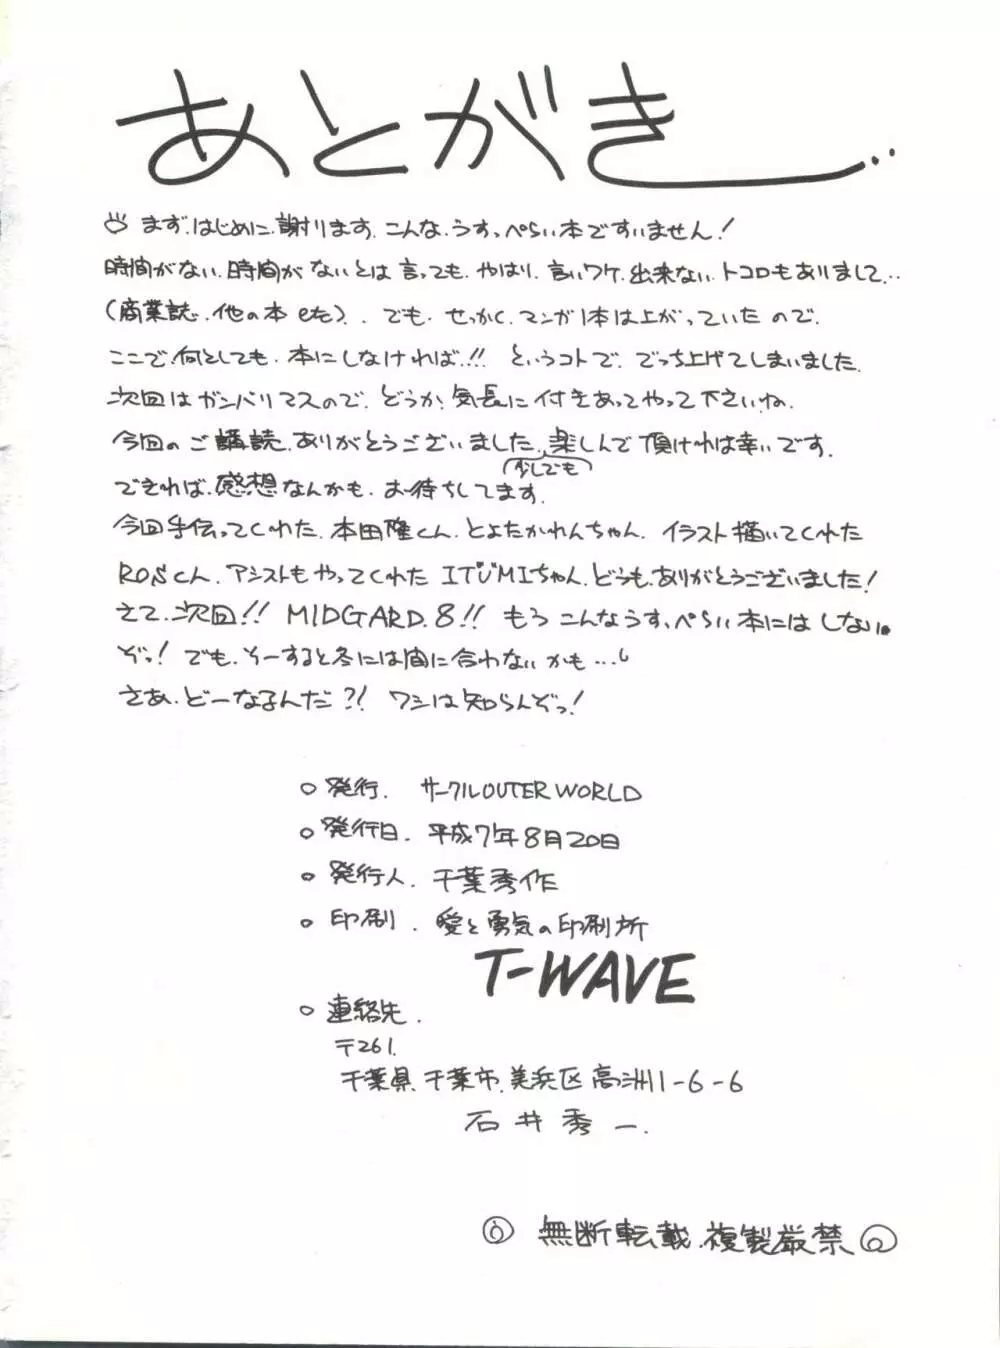 あとがき...
まず、はじめに、謝ります、こんな、うすっぺらい本ですいません!
時間がない、時間がないとは言っても、やはり、言いワケ、出来ない、トコロもありまして..
(商業誌、他の本 etc)、でも、せっかく、マンガ1本は上がっていたので、
ここで、何としても、本にしなければ..!! というコトで、でっち上げてしまいました、
次回はガンバリマスので、どうか、気長に付きあってやって下さいね、
今回のご購読、ありがとうございました、楽しんで頂ければ幸いです、
少しでも
できれば、感想なんかも、お待ちしてます、
今回手伝ってくれた、本田隆くん、とよたかれんちゃん、イラスト描いてくれた
ROSくん、アシストもやってくれた ITUMIちゃん、どうも、ありがとうございました!
さて、次回!! MIDGARD.8!! もう こんなうすっぺらい本には しない。
ぞっ! でも、そーすると冬には間に合わないかも...
さあ、どーなるんだ?! ワシは知らんぞっ!
○ 発行. サークルOUTER WORLD
○ 発行日. 平成7年8月20日
○ 発行人. 千葉秀作
○ 印刷. 愛と勇気の印刷所
T-WAVE
○ 連絡先.
〒261.
千葉県、千葉市、美浜区高洲1-6-6
石井秀一.
無断転載、複製厳禁